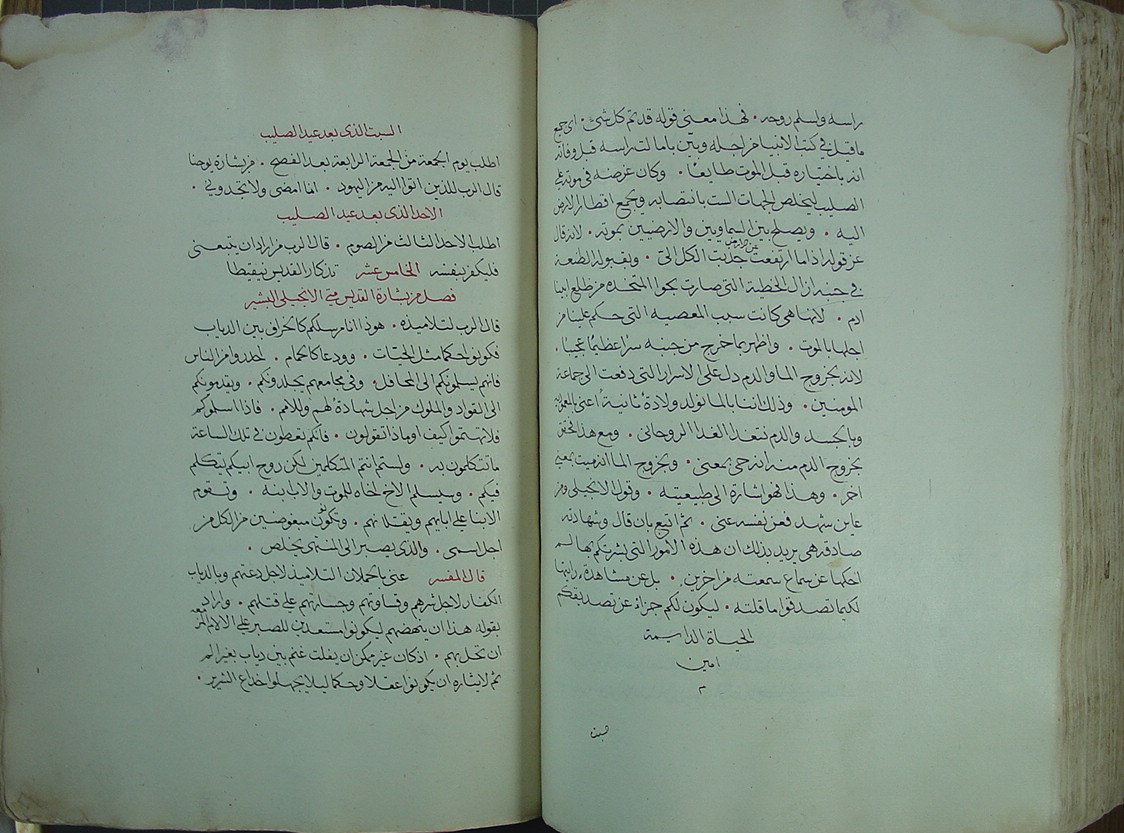 راسه واسلم روحه. فهذا معنى قوله قد تم كل شئ. اى جميع
ما قيل في كتب الانبيا من اجله وبيّن بامالت راسه قبل وفاته
انه باختياره قبل الموت طايعًا. وكان غرضه في موته على
الصليب ليخلص الجهات الست بانتصابه ويجمع اقطار الارض
اليه. ويصلح بين السماويين والارضيين بموته. لانه قال
عز قوله اذا ما ارتفعت عن الارض جذبت الكل الىّ. وبقبوله الطعنة
في جنبه ازال الخطية التى صارت بحوا المتخذه من ضلع ابينا
ادم. لانها هى كانت سبب المعصيه التى حكم علينا من
اجلها بالموت. واظهر بما خرج من جنبه سرًا عظيمًا عجيبًا.
لانه بخروج الما والدم دل على الاسرار التى دفعت الى جماعة
المومنين. وذلك اننا بالما نولد ولادة ثانية اعنى بالمعمودية
وبالجسد والدم نتغذا الغذا الروحانى. ومع هذا تحقق
بخروج الدم منه انه حى بمعنى. وبخروج الما انه ميت بمعنى
اخر. وهذا فهو اشارة الى طبيعتيه. وقول الانجيلى ومن
عاين شهد فعن نفسه عنى. ثم اتبع بان قال وشهادته
صادقه هى يريد بذلك ان هذه الامور التى بشرتكم بها لم
احكها عن سماع سمعته من اخرين. بل عن مشاهدة رايتها
لكيما تصدقوا ما قلته. ليكون لكم جزاءً عن تصديقكم
الحياة الدايمة
امين
السبت الذى بعد عيد الصليب
اطلب يوم الجمعة من الجمعة الرابعة بعد الفصح. من بشارة يوحنا
قال الرب للذين اتوا اليه من اليهود. انا امضى ولا تجدونى.
الاحد الذى بعد عيد الصليب
اطلب الاحد الثالث من الصوم. قال الرب من اراد ان يتبعنى
فليكفر بنفسه الخامس عشر تذكار القديس نيقيطا
فصل من بشارة القديس متى الانجيلى البشير
قال الرب لتلاميذه. هوذا انا مرسلكم كالخراف بين الدياب
فكونوا حكما مثل الحيّات. وودعا كالحمام. احذروا من الناس
فانهم يسلمونكم الى المحافل. وفى مجامعهم يجلدونكم. ويقدمونكم
الى القواد والملوك من اجل شهادة لهم وللامم. فاذا اسلموكم
فلا تهتموا كيف او ماذا تقولون. فانكم تعطون في تلك الساعة
ما تتكلمون به. ولستم انتم المتكلمين لكن روح ابيكم يتكلم
فيكم. وسيسلم الاخ اخاه للموت والاب ابنه. وتقوم
الابنا على ابايهم ويقتلونهم. وتكونون مبغوضين من الكل من
اجل اسمى. والذى يصبر الى المنتهى يخلص.
قال المفسر عنى بالحملان التلاميذ لاجل دعتهم وبالدياب
الكفار لاجل شرهم وقساوتهم وجسارتهم على قتلهم. واراد
بقوله هذا ان ينهضهم ليكونوا مستعدين للصبر على الالام المزمعه
ان تحل بهم. اذ كان غير ممكن ان يفلت غنم بين دياب بغير الم
ثم لايثاره ان يكونوا عقلا وحكما ليلا يجهلوا خداع الشرير.